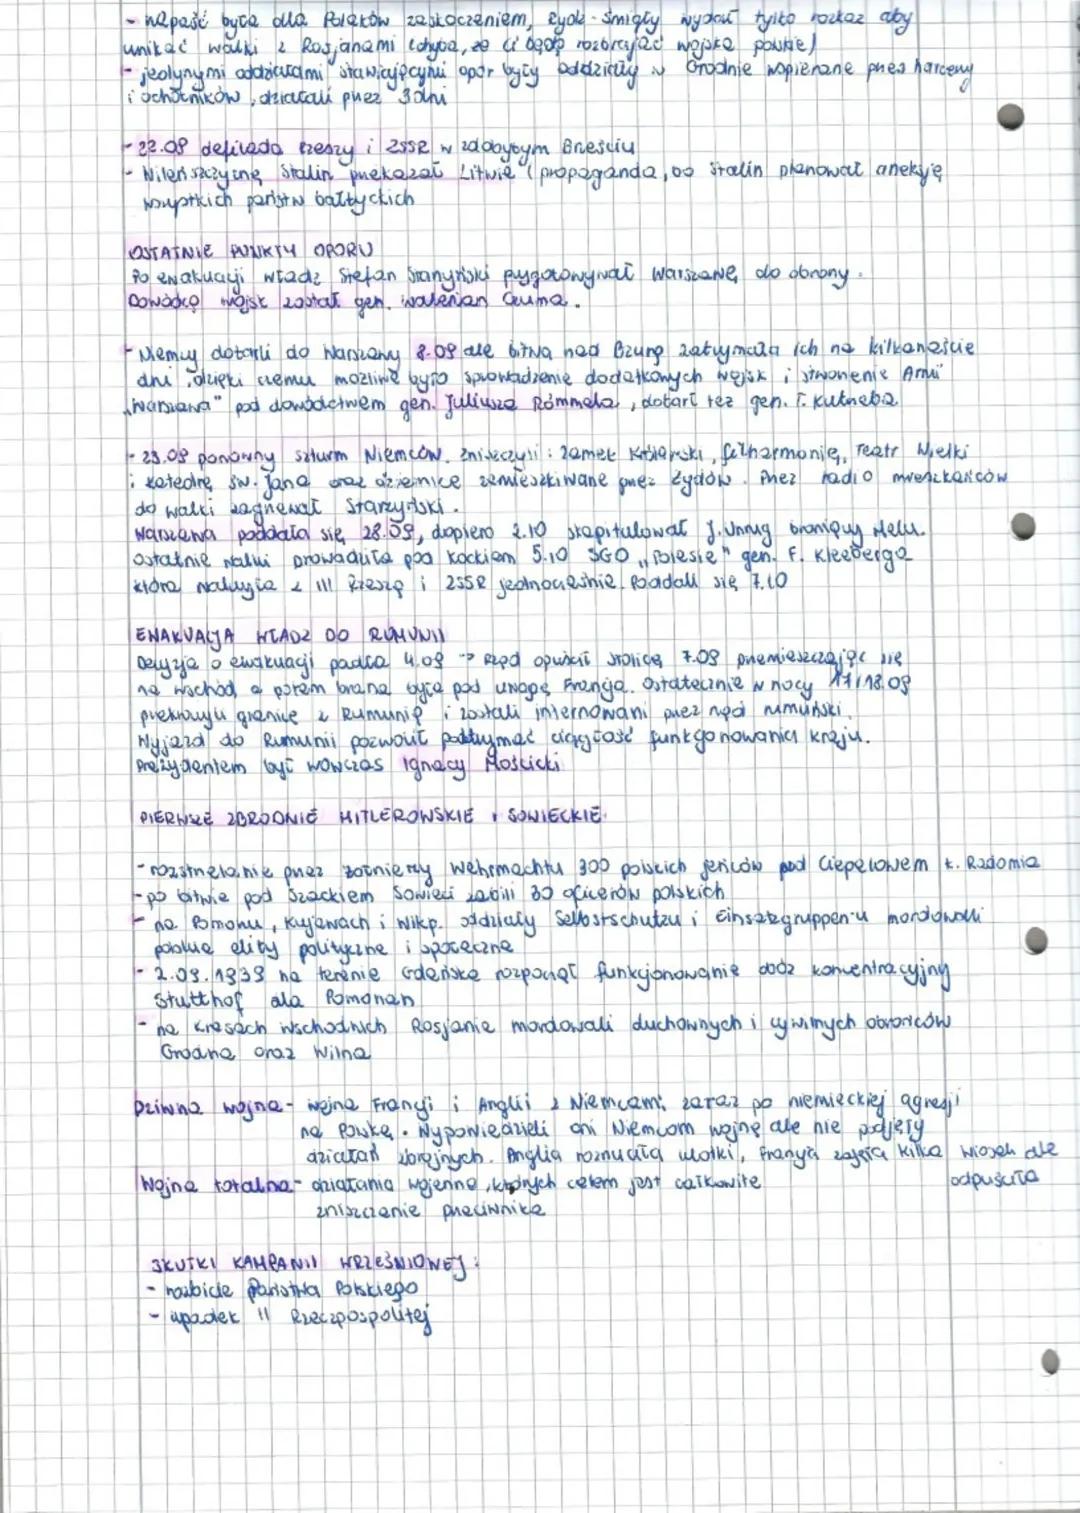 - napaść była dla Polaków zaskoczeniem, Rydz-Śmigły wydał tylko rozkaz aby
unikać walki z Rosjanami (chyba, że ci będą rozbrajać wojska polskie)
- jedynymi oddziałami stawiającymi opór były oddziały w Grodnie wspierane przez harcerzy
i ochotników, działali przez 3 dni
- 22.09 defilada Rzeszy i ZSSR w zdobytym Brześciu
- Wileńszczyznę Stalin przekazał Litwie (propaganda, bo Stalin planował aneksję
wszystkich państw bałtyckich
OSTATNIE PUNKTY OPORU
Po ewakuacji władz Stefan Starzyński przygotowywał Warszawę do obrony.
Dowódcą wojsk został gen. Walerian Czuma.
- Niemcy dotarli do Warszawy 8.09 ale bitwa nad Bzurą zatrzymała ich na kilkanaście
dni, dzięki czemu możliwe było sprowadzenie dodatkowych wojsk i stworzenie Armii
"Warszawa" pod dowództwem gen. Juliusza Rómmela, dotarł też gen. T. Kutrzeba
- 25.09 ponowny szturm Niemców. Zniszczyli: Zamek Królewski, filharmonię, Teatr Wielki
i katedrę św. Jana oraz dzielnice zamieszkiwane przez Żydów. Przez radio mieszkańców
do walki zagrzewał Starzyński.
Warszawa poddała się 28.09, dopiero 2.10 skapitulował J. Unrug broniący Helu.
Ostatnie walki prowadziła pod Kockiem 5.10 SGO "Polesie" gen. F. Kleeberga
która walczyła z III Rzeszą i ZSSR jednocześnie. Poddali się 7.10
EWAKUACJA WŁADZ DO RUMUNII
Decyzja o ewakuacji padła 4.09 → Rząd opuścił stolicę 7.09 przemieszczając się
na wschód, a potem brana była pod uwagę Francja. Ostatecznie w nocy 17/18.09
przekroczyli granicę z Rumunią i zostali internowani przez rząd rumuński.
Wyjazd do Rumunii pozwolił podtrzymać ciągłość funkcjonowania kraju.
Prezydentem był wówczas Ignacy Mościcki
PIERWSZE ZBRODNIE HITLEROWSKIE I SOWIECKIE
- rozstrzelanie przez żołnierzy Wehrmachtu 300 polskich jeńców pod Ciepielowem k. Radomia
- po bitwie pod Szackiem Sowieci zabili 30 oficerów polskich
- na Pomorzu, Kujawach i Wlkp. oddziały Selbstschutzu i Einsatzgruppen'u mordowali
polskie elity polityczne i społeczne
- 2.09.1939 na terenie Gdańska rozpoczął funkcjonowanie obóz koncentracyjny
Stutthof dla Pomorzan
- na Kresach Wschodnich Rosjanie mordowali duchownych i cywilnych obrońców
Grodna oraz Wilna
Dziwna wojna - wojna Francji i Anglii z Niemcami, zaraz po niemieckiej agresji
na Polskę. Wypowiedzieli oni Niemcom wojnę ale nie podjęły
działań zbrojnych. Anglia rozrzucała ulotki, Francja zajęła kilka wiosek ale
odpuściła
Wojna totalna - działania wojenne, których celem jest całkowite
zniszczenie przeciwnika
SKUTKI KAMPANII WRZEŚNIOWEJ:
- rozbicie Państwa Polskiego
- upadek II Rzeczpospolitej